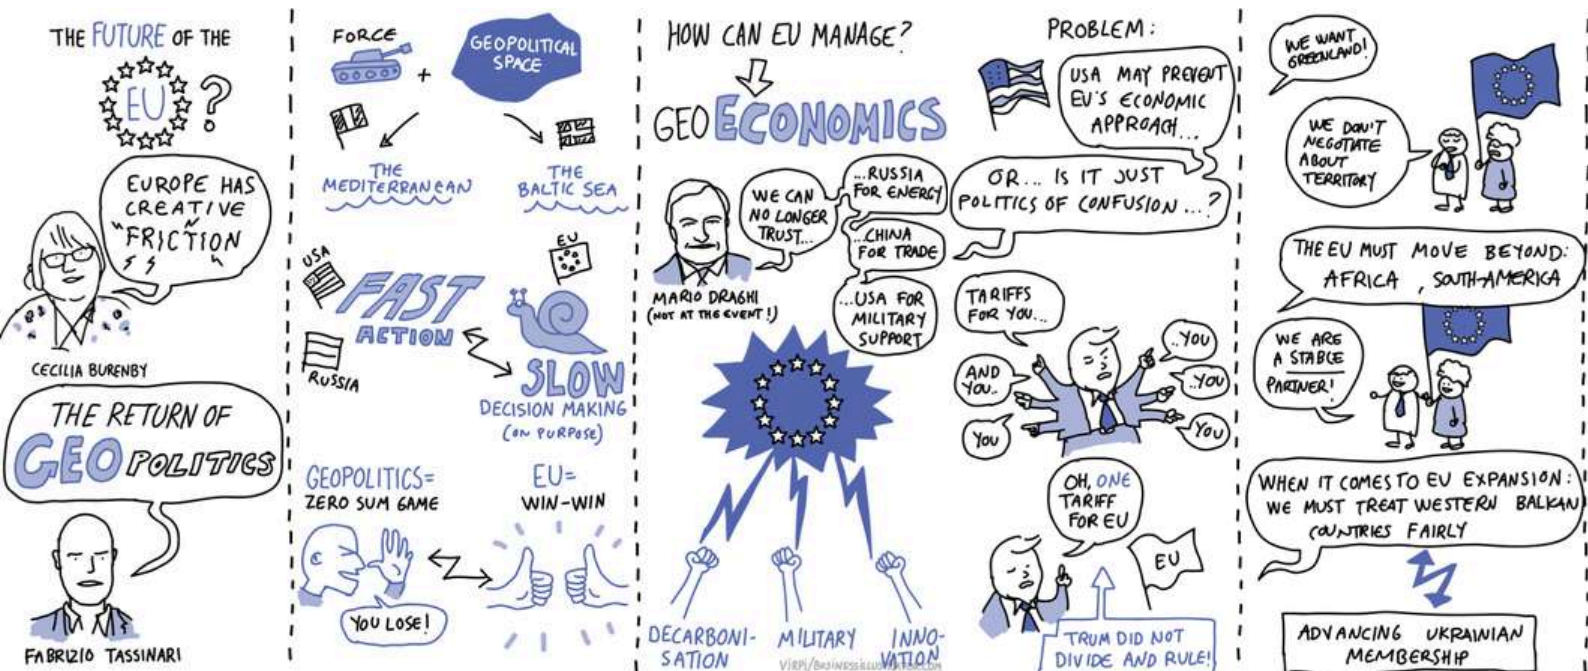 THE FUTURE OF THE
EU?
EUROPE HAS
CREATIVE
"FRICTION"
CECILIA BURENBY
THE RETURN OF
GEOPOLITICS
FABRIZIO TASSINARI
FORCE
+
GEOPOLITICAL
SPACE
THE
MEDITERRANEAN
THE
BALTIC SEA
USA
FAST
ACTION
RUSSIA
EU
SLOW
DECISION MAKING
(ON PURPOSE)
GEOPOLITICS=
ZERO SUM GAME
YOU LOSE!
EU=
WIN-WIN
HOW CAN EU MANAGE?
GEOECONOMICS
WE CAN
NO LONGER
TRUST...
...RUSSIA
FOR ENERGY
...CHINA
FOR TRADE
...USA FOR
MILITARY
SUPPORT
MARIO DRAGHI
(NOT AT THE EVENT!)
DECARBONI-
SATION
MILITARY
INNO-
VATION
VIRPI/BUSINESSILLUSTRATOR.COM
PROBLEM:
USA MAY PREVENT
EU'S ECONOMIC
APPROACH...
OR... IS IT JUST
POLITICS OF CONFUSION...?
TARIFFS
FOR YOU...
AND
YOU..
YOU
..YOU
..YOU
YOU
OH, ONE
TARIFF
FOR EU
EU
TRUM DID NOT
DIVIDE AND RULE!
WE WANT
GREENLAND!
WE DON'T
NEGOTIATE
ABOUT
TERRITORY
THE EU MUST MOVE BEYOND:
AFRICA, SOUTH-AMERICA
WE ARE
A STABLE
PARTNER!
WHEN IT COMES TO EU EXPANSION:
WE MUST TREAT WESTERN BALKAN
COUNTRIES FAIRLY
ADVANCING UKRAINIAN
MEMBERSHIP